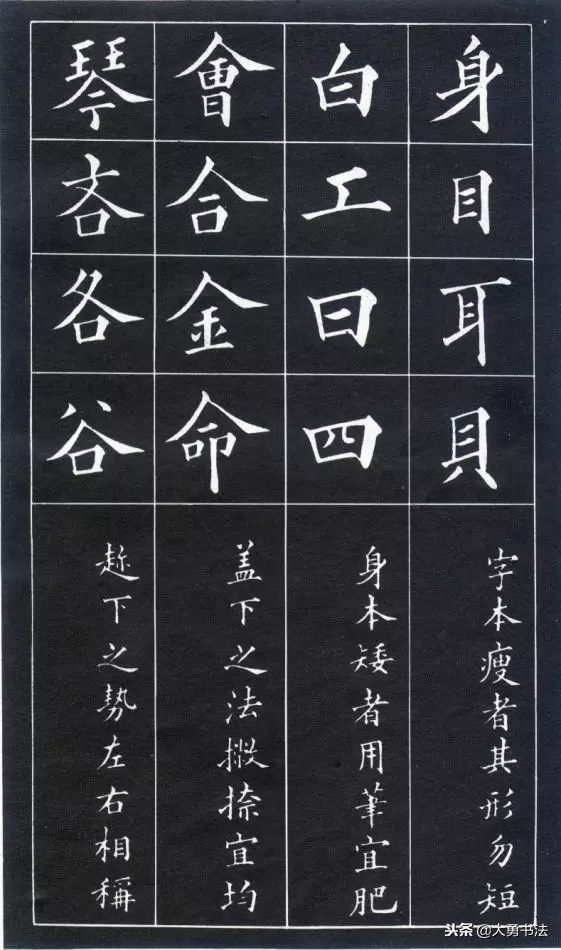 身目耳貝
字本瘦者其形勿短
白工曰四
身本矮者用筆宜肥
會合金命
盖下之法撇捺宜均
琴吝各谷
趂下之勢左右相稱
头条@大勇书法